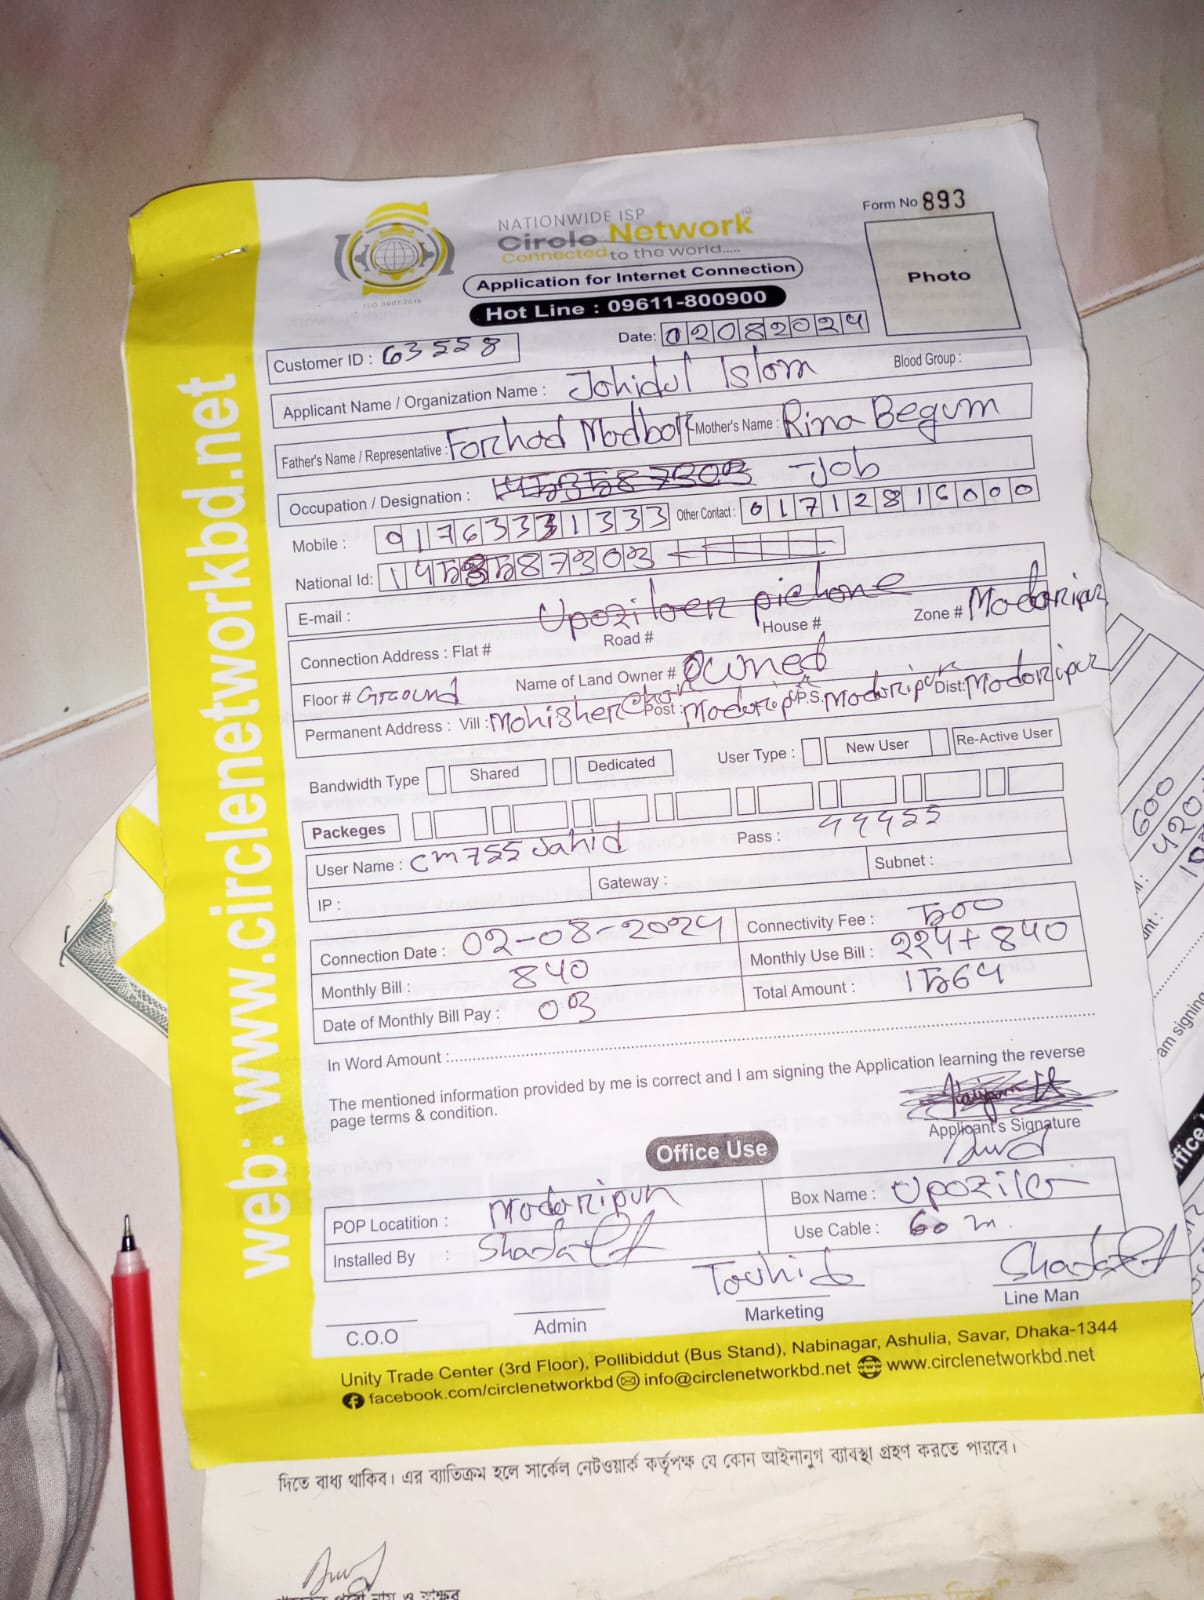 NATIONWIDE ISP
Circle Network
Connected to the world.....
ISO 9001 2015
Application for Internet Connection
Hot Line : 09611-800900
Form No 893
Photo
Customer ID : 63558
Date: 02082024
Applicant Name / Organization Name : Johidul Islom Blood Group :
Father's Name / Representative : Forhad Modbor Mother's Name : Rina Begum
Occupation / Designation : Job
Mobile : 01763331333 Other Contact : 01712816000
National Id:
E-mail :
Connection Address : Flat # Upozilaer pichone Road # House # Zone # Modaripur
Floor # Ground Name of Land Owner # Owned
Permanent Address : Vill : Mohisherchor Post : Modaripur P.S. Modaripur Dist: Modaripur
Bandwidth Type Shared Dedicated User Type : New User Re-Active User
Packeges
User Name : cm755Jahid Pass :
IP : Gateway : Subnet :
Connection Date : 02-08-2024 Connectivity Fee : ৳00
Monthly Bill : 840 Monthly Use Bill : 224+840
Date of Monthly Bill Pay : 03 Total Amount :
In Word Amount :
The mentioned information provided by me is correct and I am signing the Application learning the reverse
page terms & condition.
Applicant's Signature
Office Use
POP Locatition : Modaripur Box Name : Upozila
Installed By : Use Cable : 60 m.
Towhid
C.O.O Admin Marketing Line Man
Unity Trade Center (3rd Floor), Pollibiddut (Bus Stand), Nabinagar, Ashulia, Savar, Dhaka-1344
facebook.com/circlenetworkbd info@circlenetworkbd.net www.circlenetworkbd.net
web: www.circlenetworkbd.net
দিতে বাধ্য থাকিব। এর ব্যতিক্রম হলে সার্কেল নেটওয়ার্ক কর্তৃপক্ষ যে কোন আইনানুগ ব্যাবস্থা গ্রহণ করতে পারবে।
600
420
am signing